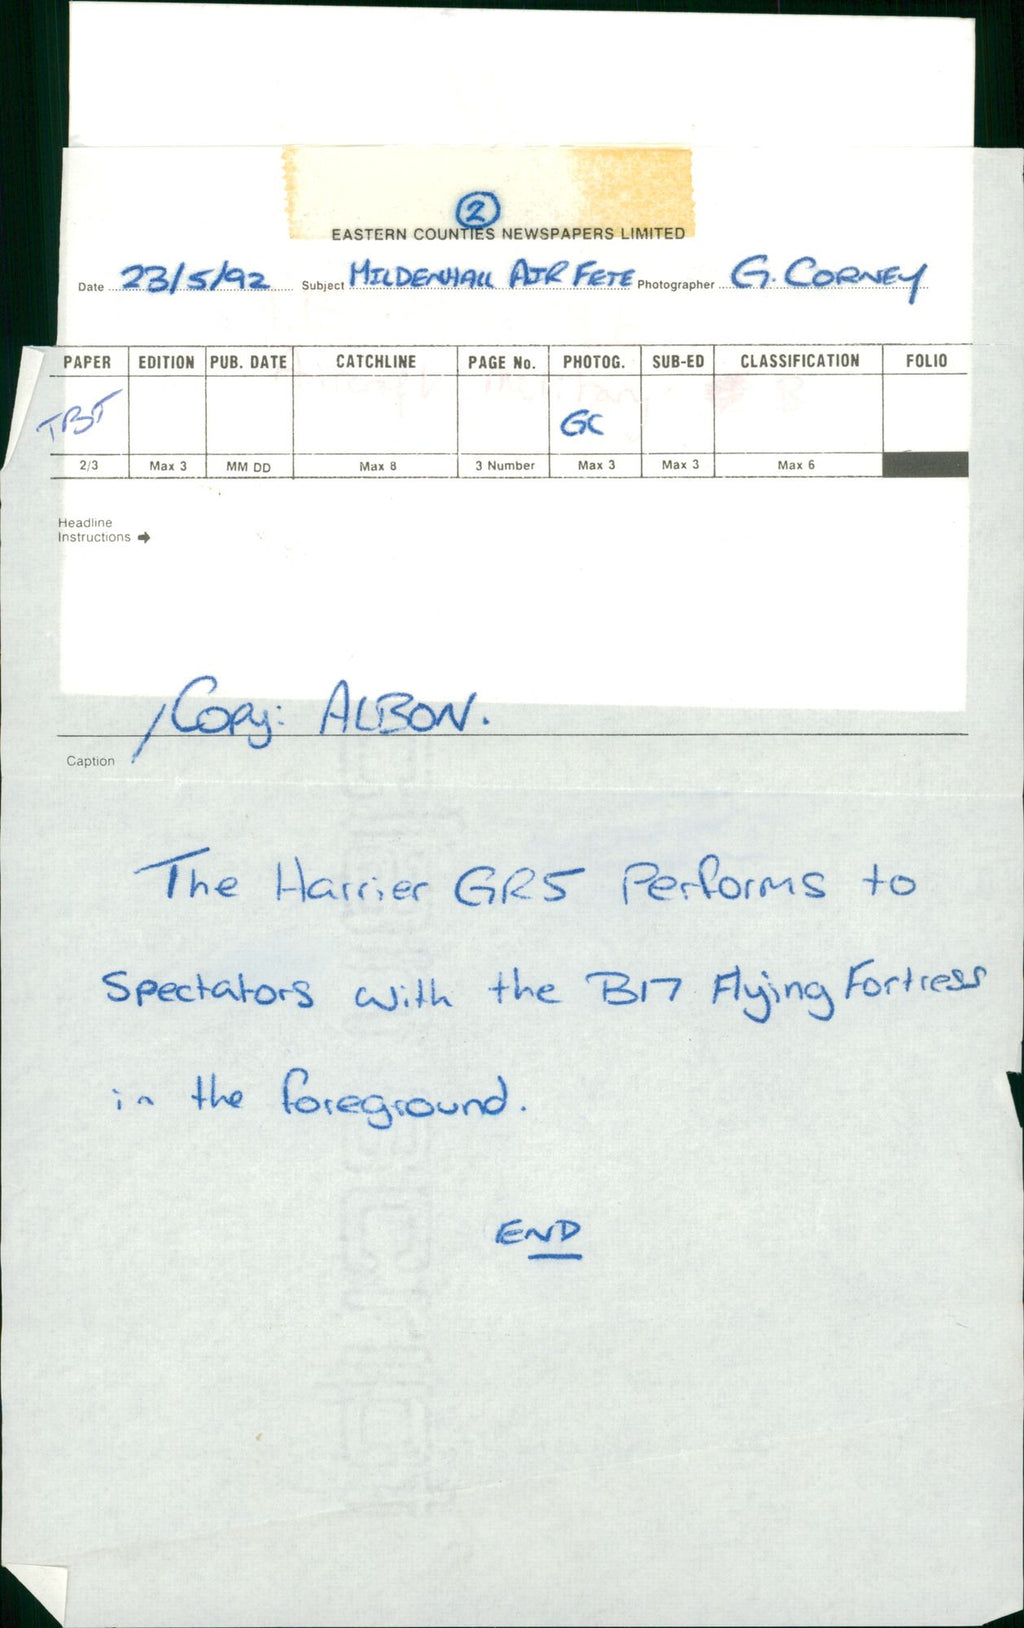 2
EASTERN COUNTIES NEWSPAPERS LIMITED
Date 23/5/92 Subject MILDENHALL AIR FETE Photographer G. CORNEY
PAPER EDITION PUB. DATE CATCHLINE PAGE No. PHOTOG. SUB-ED CLASSIFICATION FOLIO
TBT GC
2/3 Max 3 MM DD Max 8 3 Number Max 3 Max 3 Max 6
Headline
Instructions
/Copy: ALBON.
Caption
The Harrier GR5 Performs to
Spectators with the B17 Flying Fortress
in the foreground.
END